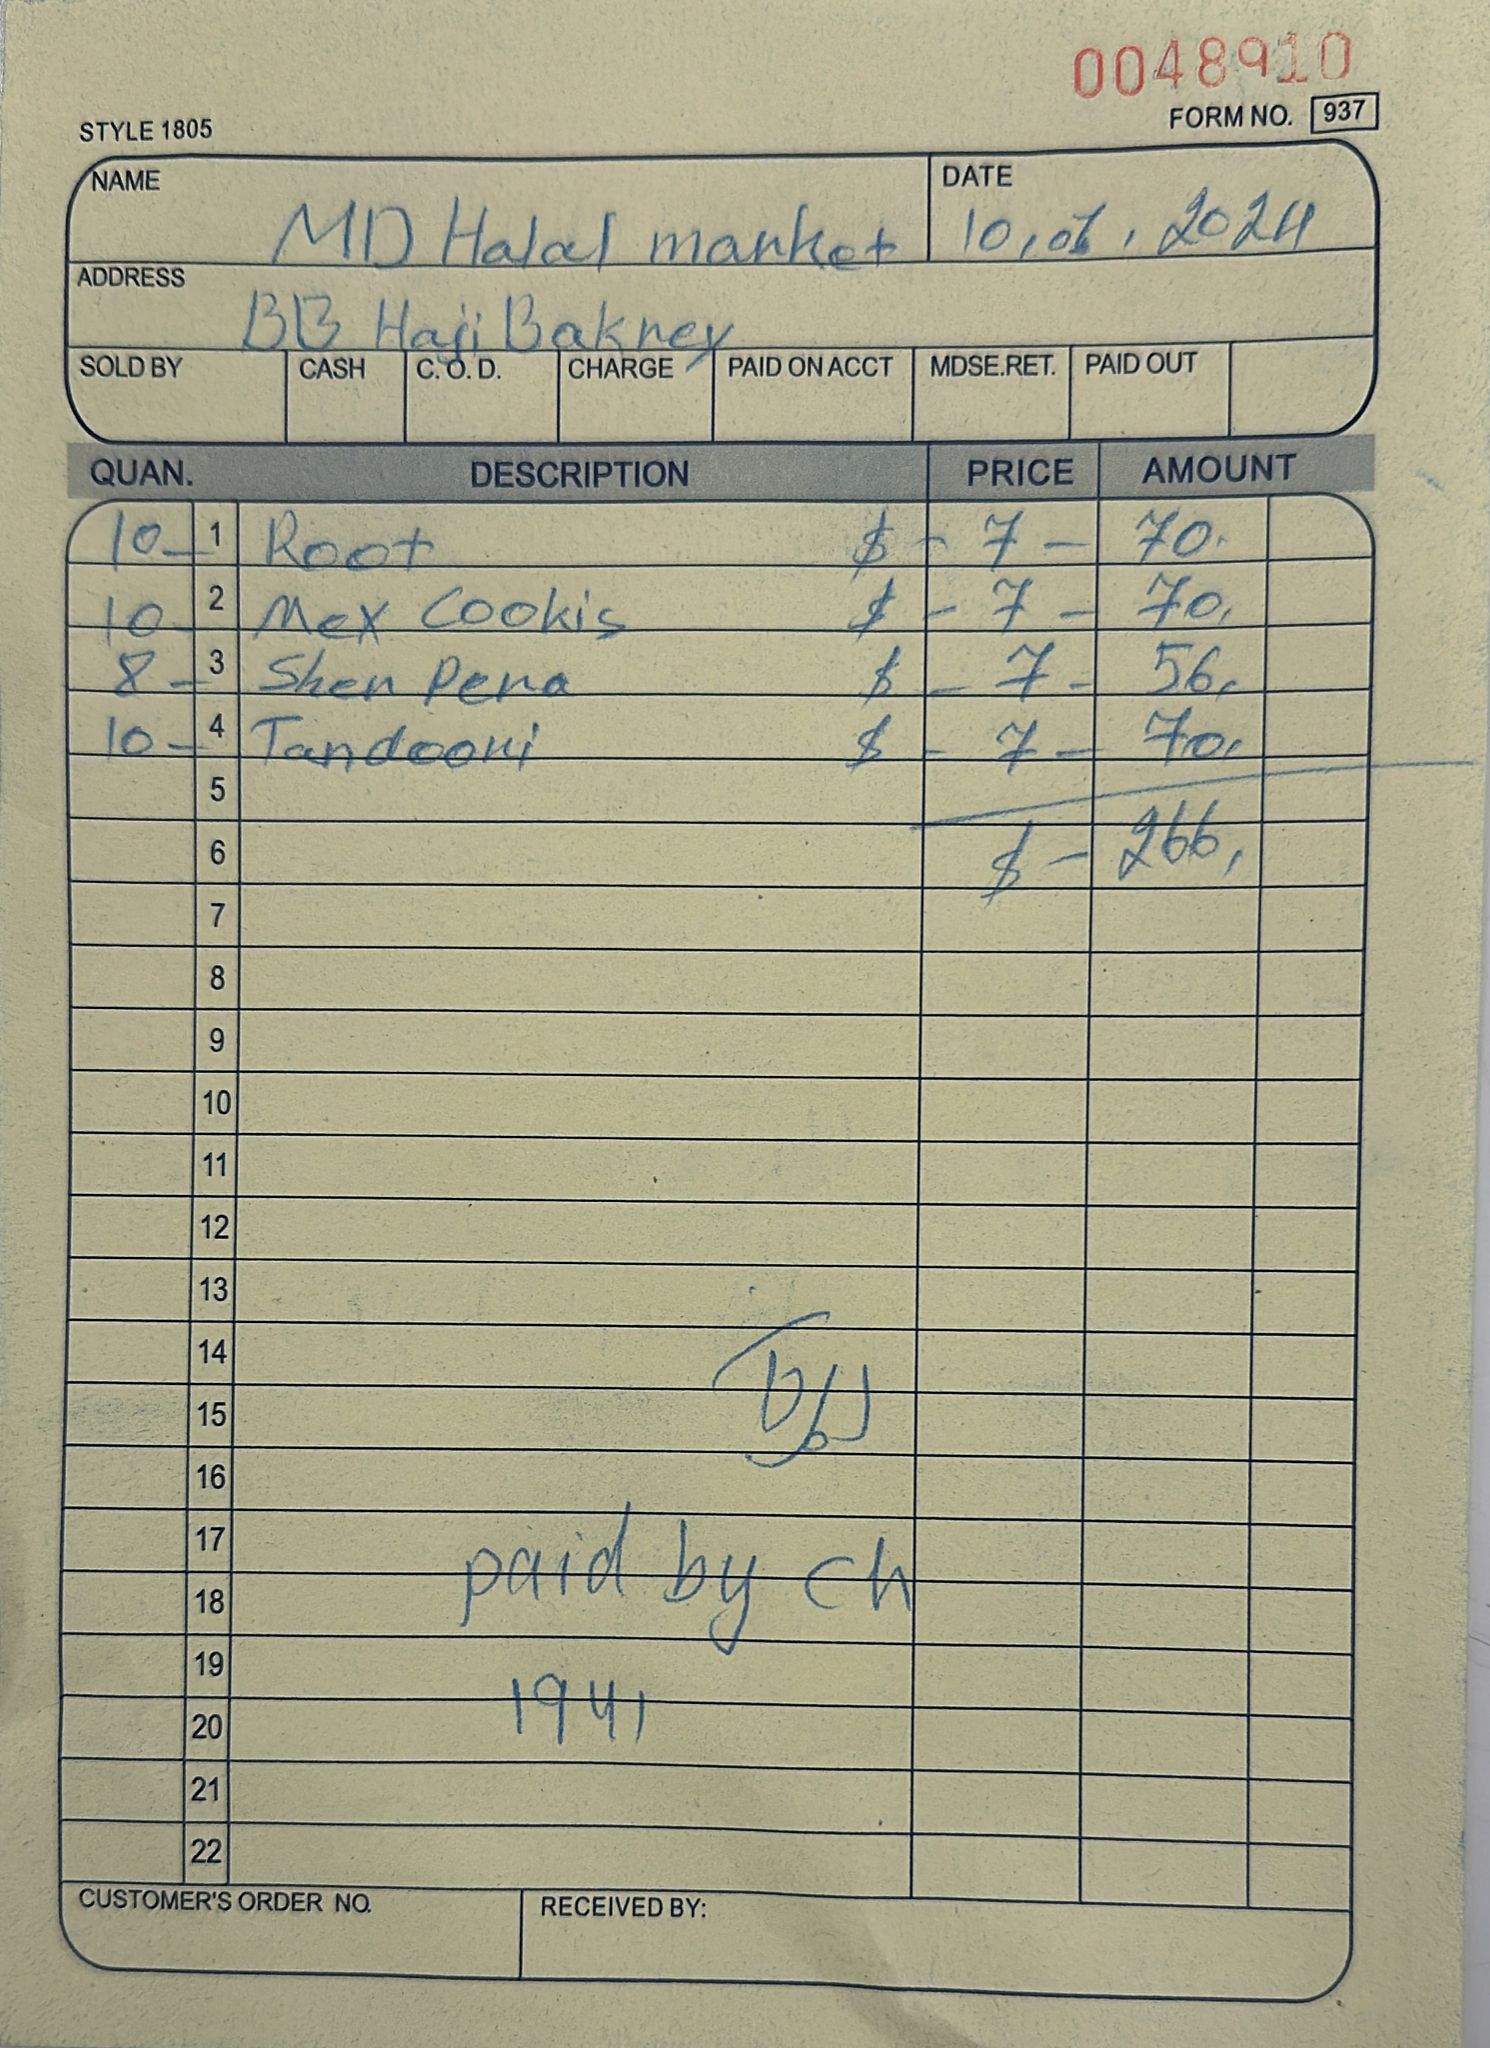 0048910
STYLE 1805
FORM NO. 937
NAME
DATE
MD Halal market
10, 2024
ADDRESS
BB Haji Bakrey
SOLD BY CASH C. O. D. CHARGE PAID ON ACCT MDSE.RET. PAID OUT
QUAN. DESCRIPTION PRICE AMOUNT
10- 1 Root $ - 7 - 70.
10- 2 Mex Cookis $ - 7 - 70,
8 - 3 Sher Pera $ - 7 - 56,
10- 4 Tandoori $ - 7 - 70,
5
6 $ - 266,
7
8
9
10
11
12
13
14
15
16
17
paid by ch
18
19
1941
20
21
22
CUSTOMER'S ORDER NO. RECEIVED BY: